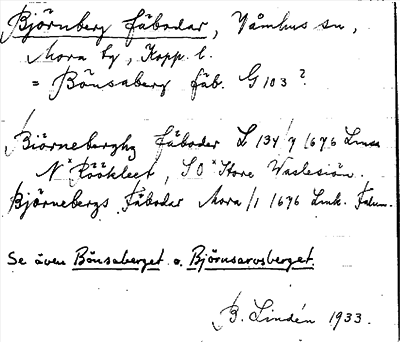 Björnberg fäbodar, Våmhus sn,
Mora tg, Kopp. l.
= Bönsaberg fäb. G 103?
Biörneberghz Fäboder L 134/7 1676 Lmsa
N˟ Röökleet, SO˟ Store Waslesiön.
Björnebergs Fäbodar Mora/1 1676 Lmk. Falun.
Se även Bönsaberget o. Björnsarvsberget.
B. Lindén 1933.